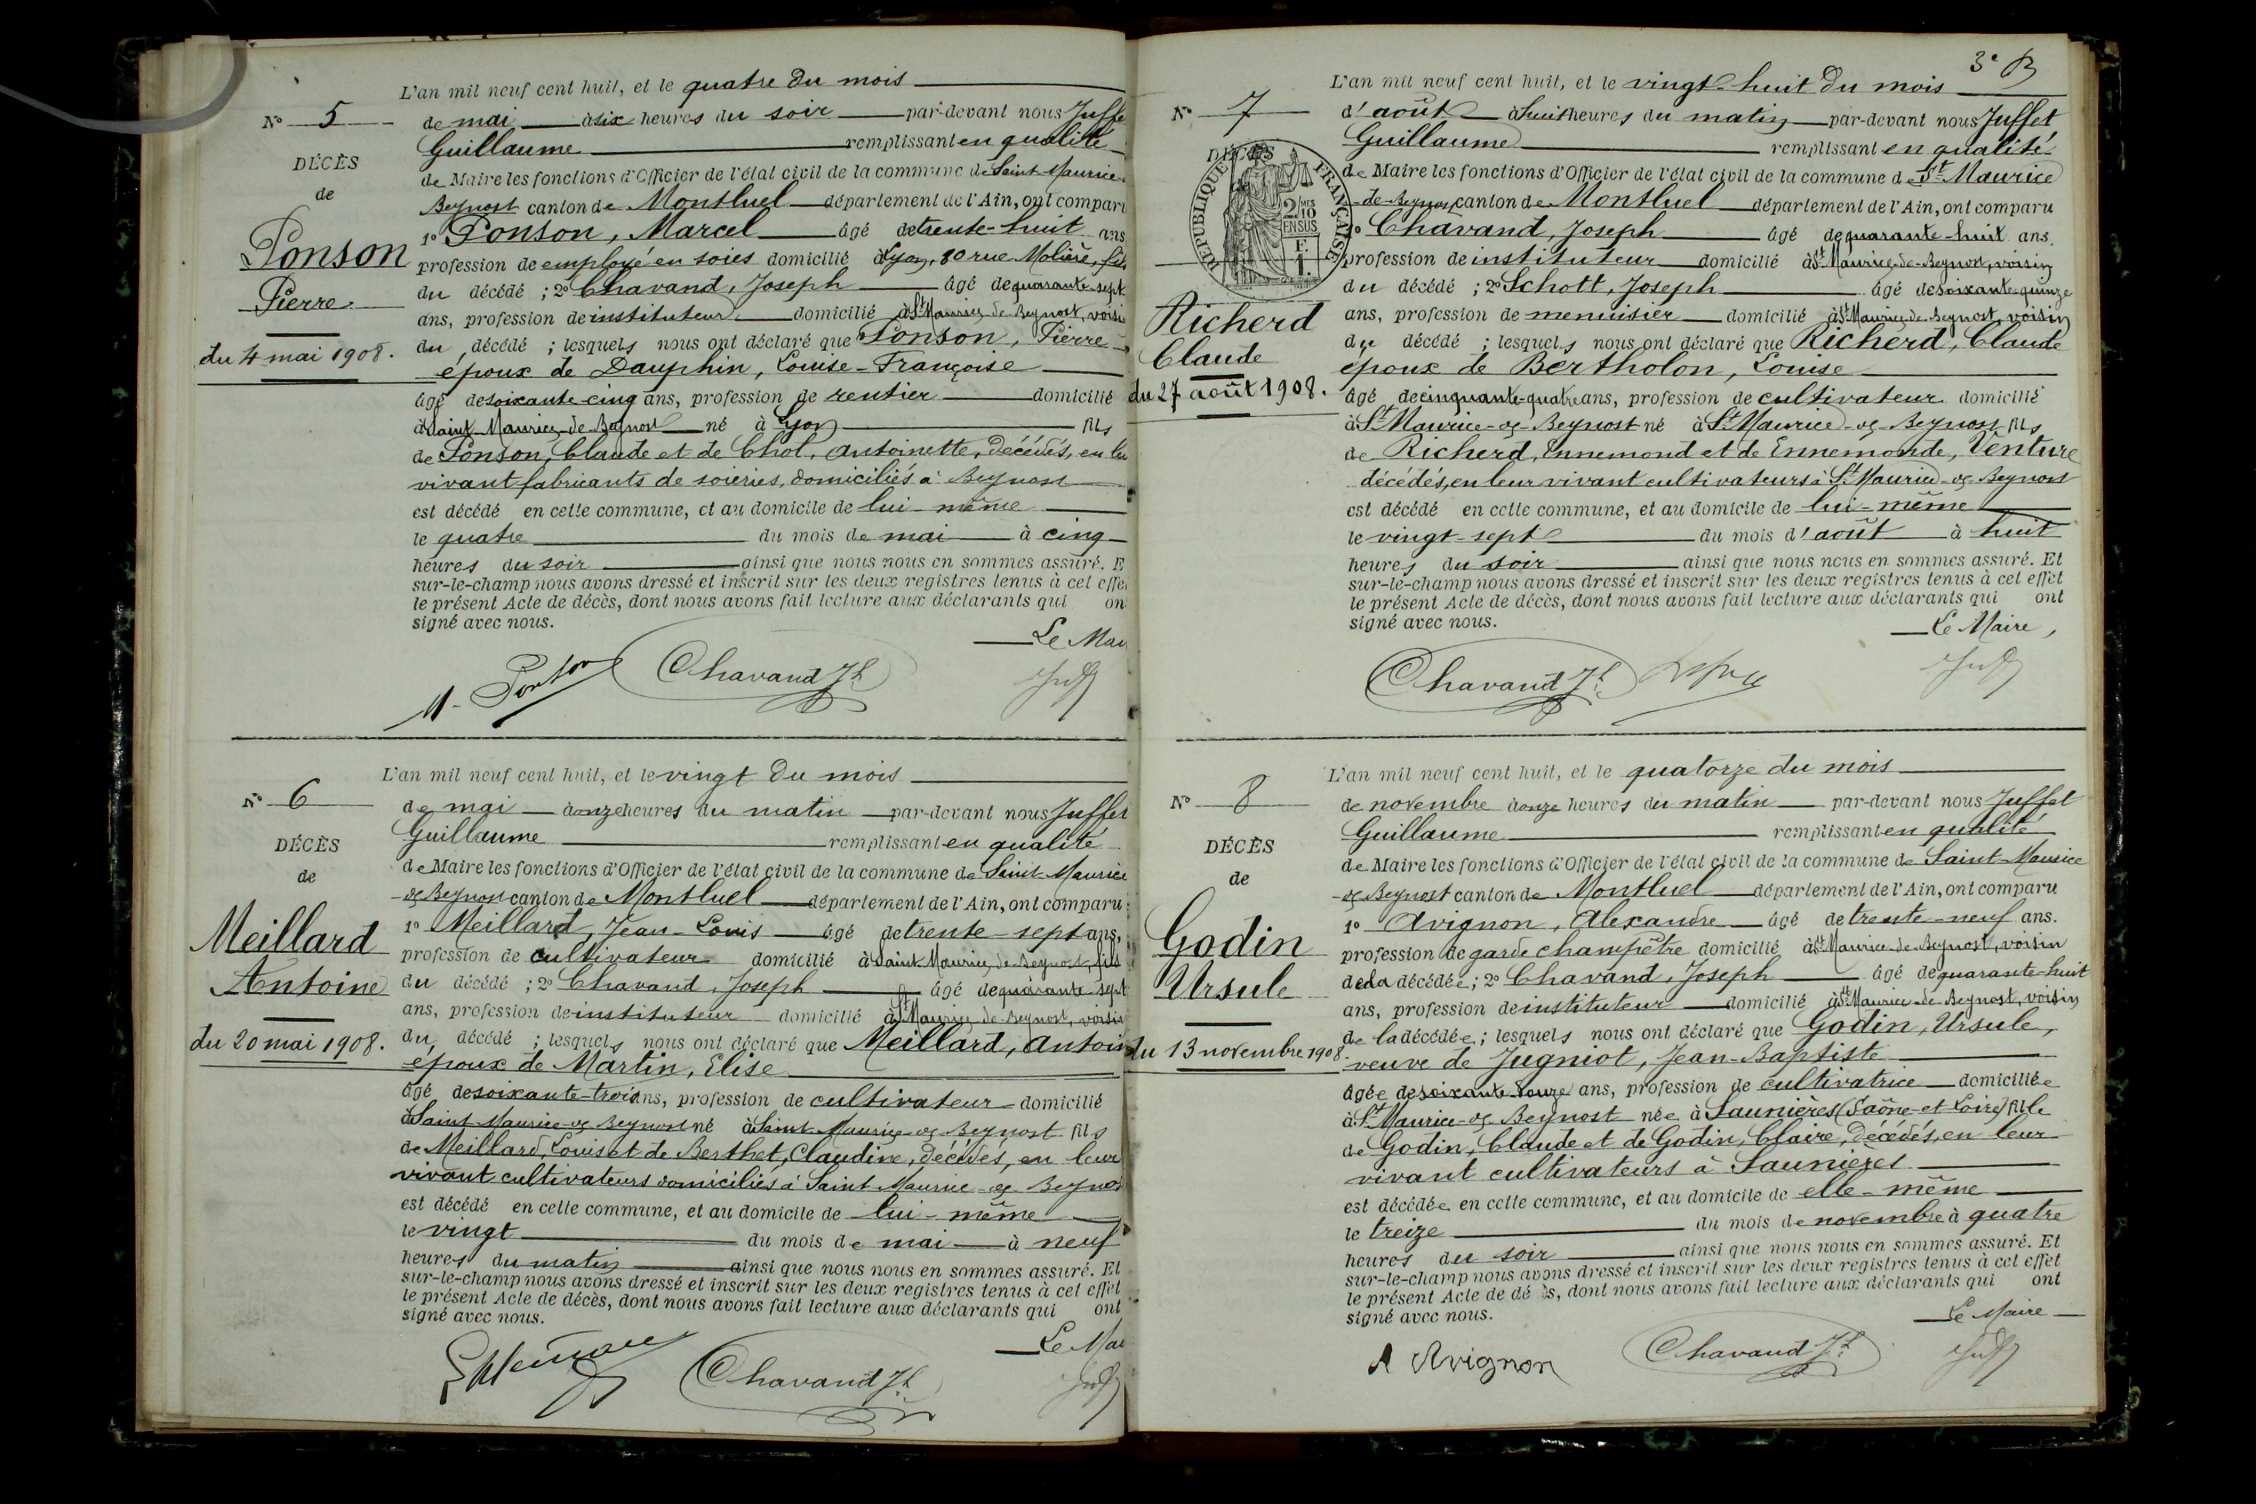 L'an mil neuf cent huit, et le quatre du mois
N° 5
de mai à six heures du soir par-devant nous Juffe
Guillaume remplissant en qualité
DÉCÈS
de Maire les fonctions d'Officier de l'état civil de la commune de Saint-Maurice
de
Beynost canton de Montluel département de l'Ain, ont compar
1° Ponson, Marcel âgé de trente-huit ans
Ponson
profession de employé en soies domicilié à Lyon, 80 rue Molière, fils
Pierre
du décédé ; 2° Chavand, Joseph âgé de quarante-sept
ans, profession de instituteur domicilié à St Maurice-de-Beynost, voisi
du 4 mai 1908.
du décédé ; lesquels nous ont déclaré que Ponson, Pierre
époux de Dauphin, Louise-Françoise
âgé de soixante-cinq ans, profession de rentier domicilié
à Saint-Maurice-de-Beynost né à Lyon fils
de Ponson, Claude et de Chol, Antoinette, décédés, en leu
vivant fabricants de soieries, domiciliés à Beynost
est décédé en cette commune, et au domicile de lui-même
le quatre du mois de mai à cinq
heures du soir ainsi que nous nous en sommes assuré. E
sur-le-champ nous avons dressé et inscrit sur les deux registres tenus à cet effe
le présent Acte de décès, dont nous avons fait lecture aux déclarants qui on
signé avec nous.
Le Mai
M. Ponson Chavand Jh
L'an mil neuf cent huit, et le vingt du mois
N° 6
de mai à onze heures du matin par-devant nous Juffet
Guillaume remplissant en qualité
DÉCÈS
de Maire les fonctions d'Officier de l'état civil de la commune de Saint-Maurice
de
de Beynost canton de Montluel département de l'Ain, ont comparu
1° Meillard, Jean-Louis âgé de trente-sept ans,
Meillard
profession de cultivateur domicilié à Saint-Maurice-de-Beynost, fils
Antoine
du décédé ; 2° Chavand, Joseph âgé de quarante-sept
ans, profession de instituteur domicilié à St Maurice-de-Beynost, voisin
du 20 mai 1908.
du décédé ; lesquels nous ont déclaré que Meillard, Antoin
époux de Martin, Elise
âgé de soixante-trois ans, profession de cultivateur domicilié
à Saint-Maurice-de-Beynost né à Saint-Maurice-de-Beynost fils
de Meillard, Louis et de Berthet, Claudine, décédés, en leur
vivant cultivateurs domiciliés à Saint-Maurice-de-Beynos
est décédé en cette commune, et au domicile de lui-même
le vingt du mois de mai à neuf
heures du matin ainsi que nous nous en sommes assuré. Et
sur-le-champ nous avons dressé et inscrit sur les deux registres tenus à cet effet
le présent Acte de décès, dont nous avons fait lecture aux déclarants qui ont
signé avec nous.
Le Mai
Chavand Jh
3e
L'an mil neuf cent huit, et le vingt-huit du mois
N° 7
d'août à huit heures du matin par-devant nous Juffet
Guillaume remplissant en qualité
DÉCÈS
RÉPUBLIQUE FRANÇAISE
2/10 MES EN SUS
F. 1.
de Maire les fonctions d'Officier de l'état civil de la commune de St-Maurice
de-Beynost canton de Montluel département de l'Ain, ont comparu
1° Chavand, Joseph âgé de quarante-huit ans.
profession de instituteur domicilié à St Maurice-de-Beynost, voisin
du décédé ; 2° Schott, Joseph âgé de soixante-quinze
Richerd
ans, profession de menuisier domicilié à St Maurice-de-Beynost, voisin
Claude
du décédé ; lesquels nous ont déclaré que Richerd, Claude
époux de Bertholon, Louise
du 27 août 1908.
âgé de cinquante-quatre ans, profession de cultivateur domicilié
à St Maurice-de-Beynost né à St Maurice-de-Beynost fils
de Richerd, Ennemond et de Ennemonde, Venture
décédés, en leur vivant cultivateurs à St Maurice-de-Beynost
est décédé en cette commune, et au domicile de lui-même
le vingt-sept du mois d'août à huit
heures du soir ainsi que nous nous en sommes assuré. Et
sur-le-champ nous avons dressé et inscrit sur les deux registres tenus à cet effet
le présent Acte de décès, dont nous avons fait lecture aux déclarants qui ont
signé avec nous.
Le Maire,
Chavand Jh
L'an mil neuf cent huit, et le quatorze du mois
N° 8
de novembre à onze heures du matin par-devant nous Juffet
Guillaume remplissant en qualité
DÉCÈS
de Maire les fonctions d'Officier de l'état civil de la commune de Saint-Maurice
de
de Beynost canton de Montluel département de l'Ain, ont comparu
1° Avignon, Alexandre âgé de trente-neuf ans.
Godin
profession de garde champêtre domicilié à St Maurice-de-Beynost, voisin
Ursule
de la décédée ; 2° Chavand, Joseph âgé de quarante-huit
ans, profession de instituteur domicilié à St Maurice-de-Beynost, voisin
de la décédée ; lesquels nous ont déclaré que Godin, Ursule,
du 13 novembre 1908.
veuve de Jugniot, Jean-Baptiste
âgée de soixante-douze ans, profession de cultivatrice domiciliée
à St Maurice-de-Beynost née à Saunières (Saône-et-Loire) fille
de Godin, Claude et de Godin, Claire, décédés, en leur
vivant cultivateurs à Saunières
est décédée en cette commune, et au domicile de elle-même
le treize du mois de novembre à quatre
heures du soir ainsi que nous nous en sommes assuré. Et
sur-le-champ nous avons dressé et inscrit sur les deux registres tenus à cet effet
le présent Acte de dé ès, dont nous avons fait lecture aux déclarants qui ont
signé avec nous.
Le Maire
A Avignon Chavand Jh